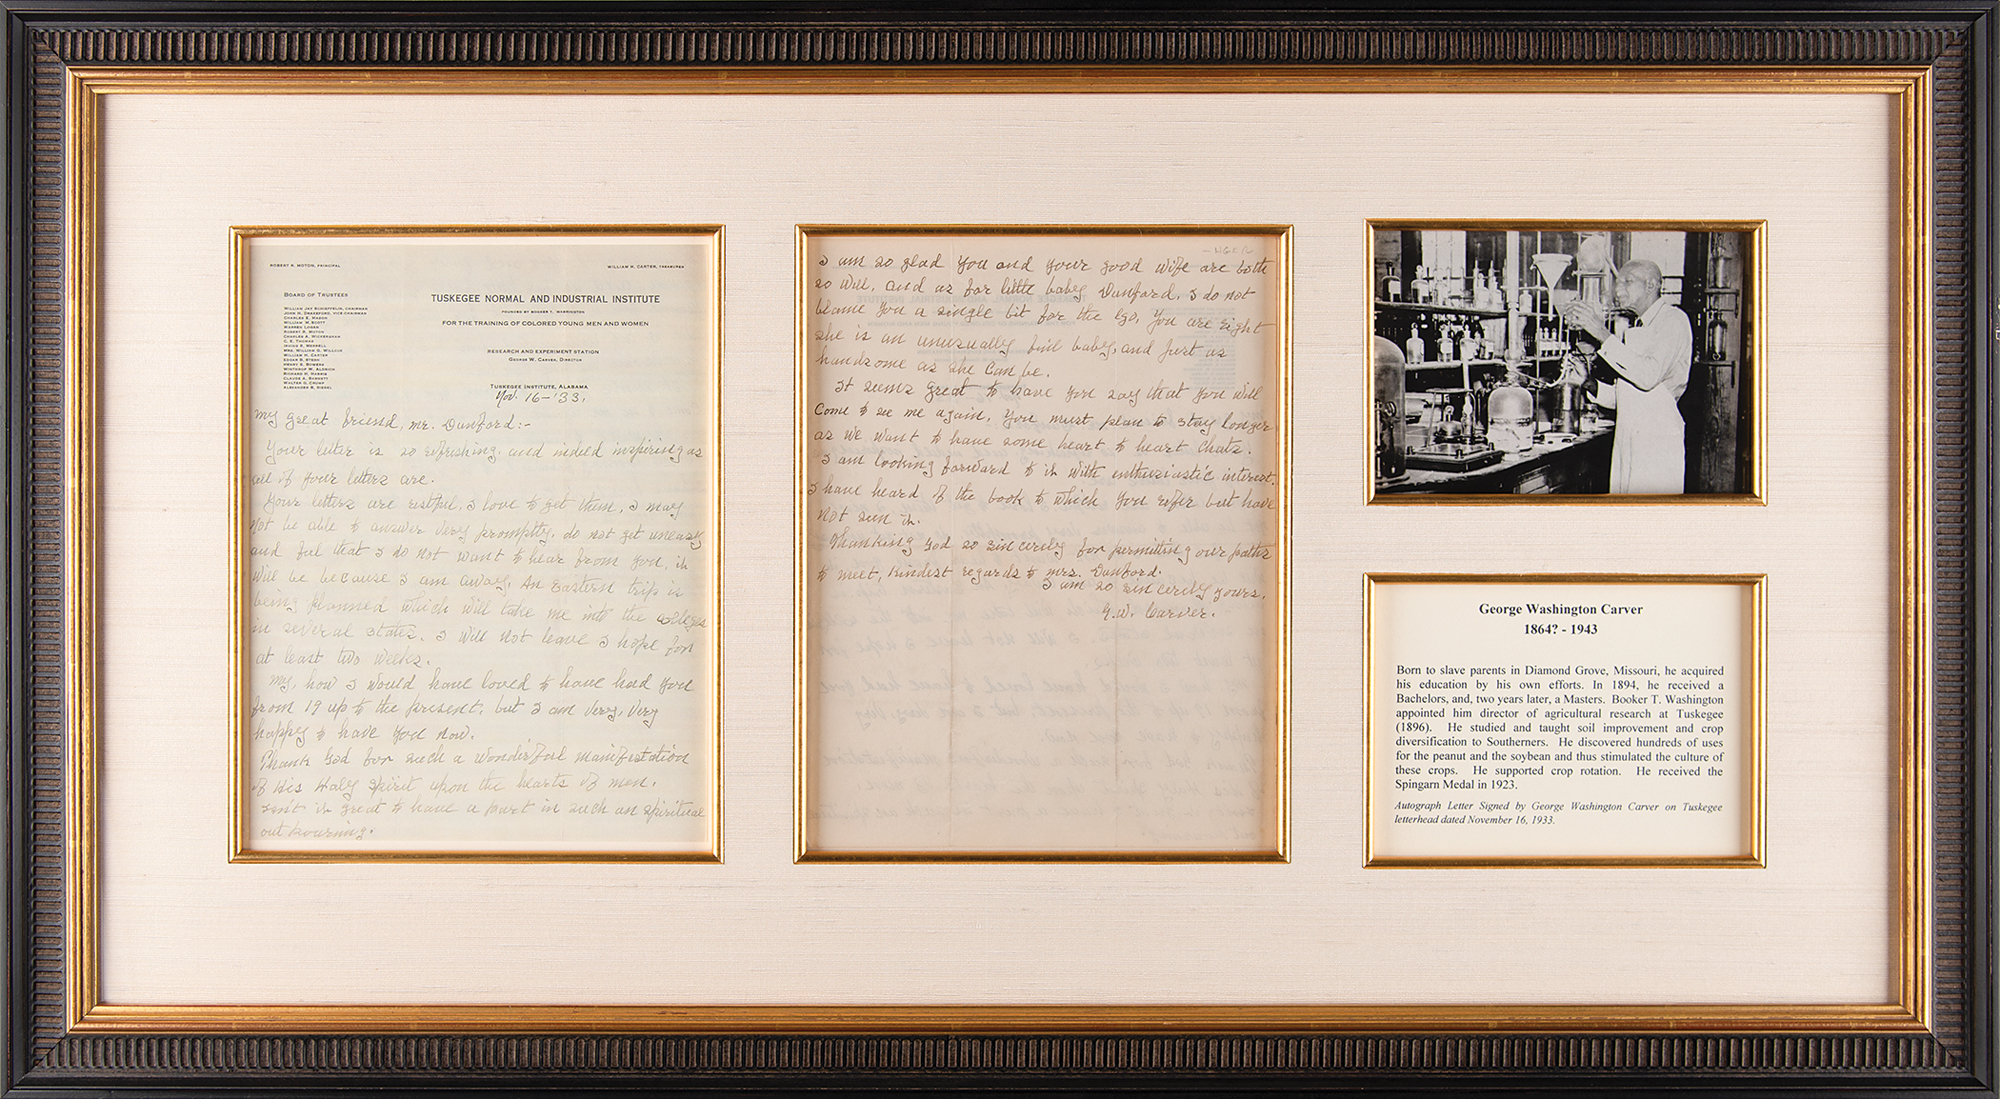 ROBERT R. MOTON, PRINCIPAL
WILLIAM H. CARTER, TREASURER
BOARD OF TRUSTEES
WILLIAM JAY SCHIEFFELIN, CHAIRMAN
JOHN H. DRAKEFORD, VICE-CHAIRMAN
CHARLES E. MASON
WILLIAM M. SCOTT
WARREN LOGAN
ROBERT R. MOTON
CHARLES A. WICKERSHAM
C. E. THOMAS
IRVING S. MERRELL
MRS. WILLIAM G. WILLCOX
WILLIAM H. CARTER
EDGAR B. STERN
HENRY E. BOWERS
WINTHROP W. ALDRICH
RICHARD H. HARRIS
CLAUDE A. BARNETT
WALTER G. CRUMP
ALEXANDER B. SIEGEL
TUSKEGEE NORMAL AND INDUSTRIAL INSTITUTE
FOUNDED BY BOOKER T. WASHINGTON
FOR THE TRAINING OF COLORED YOUNG MEN AND WOMEN
RESEARCH AND EXPERIMENT STATION
GEORGE W. CARVER, DIRECTOR
TUSKEGEE INSTITUTE, ALABAMA
Nov. 16-'33.
My great friend, Mr. Dunford:-
Your letter is so refreshing, and indeed inspiring as
all of your letters are.
Your letters are restful, I love to get them, I may
not be able to answer very promptly, do not get uneasy
and feel that I do not want to hear from you, it
will be because I am away. An Eastern trip is
being planned which will take me into the colleges
in several states. I will not leave I hope for
at least two weeks.
My, how I would have loved to have had you
from 19 up to the present, but I am very, very
happy to have you now.
Thank God for such a wonderful manifestation
of His Holy Spirit upon the hearts of men.
Isn't it great to have a part in such an spiritual
out pouring.
I am so glad you and your good wife are both
so well, and as for little baby Dunford, I do not
blame you a single bit for the Ego, you are right
she is an unusually fine baby, and just as
handsome as she can be.
It seems great to have you say that you will
come to see me again, you must plan to stay longer
as we want to have some heart to heart chats.
I am looking forward to it with enthusiastic interest.
I have heard of the book to which you refer but have
not seen it.
Thanking God so sincerely for permitting our paths
to meet, kindest regards to Mrs. Dunford.
I am so sincerely yours,
G.W. Carver.
George Washington Carver
1864? - 1943
Born to slave parents in Diamond Grove, Missouri, he acquired
his education by his own efforts. In 1894, he received a
Bachelors, and, two years later, a Masters. Booker T. Washington
appointed him director of agricultural research at Tuskegee
(1896). He studied and taught soil improvement and crop
diversification to Southerners. He discovered hundreds of uses
for the peanut and the soybean and thus stimulated the culture of
these crops. He supported crop rotation. He received the
Spingarn Medal in 1923.
Autograph Letter Signed by George Washington Carver on Tuskegee
letterhead dated November 16, 1933.